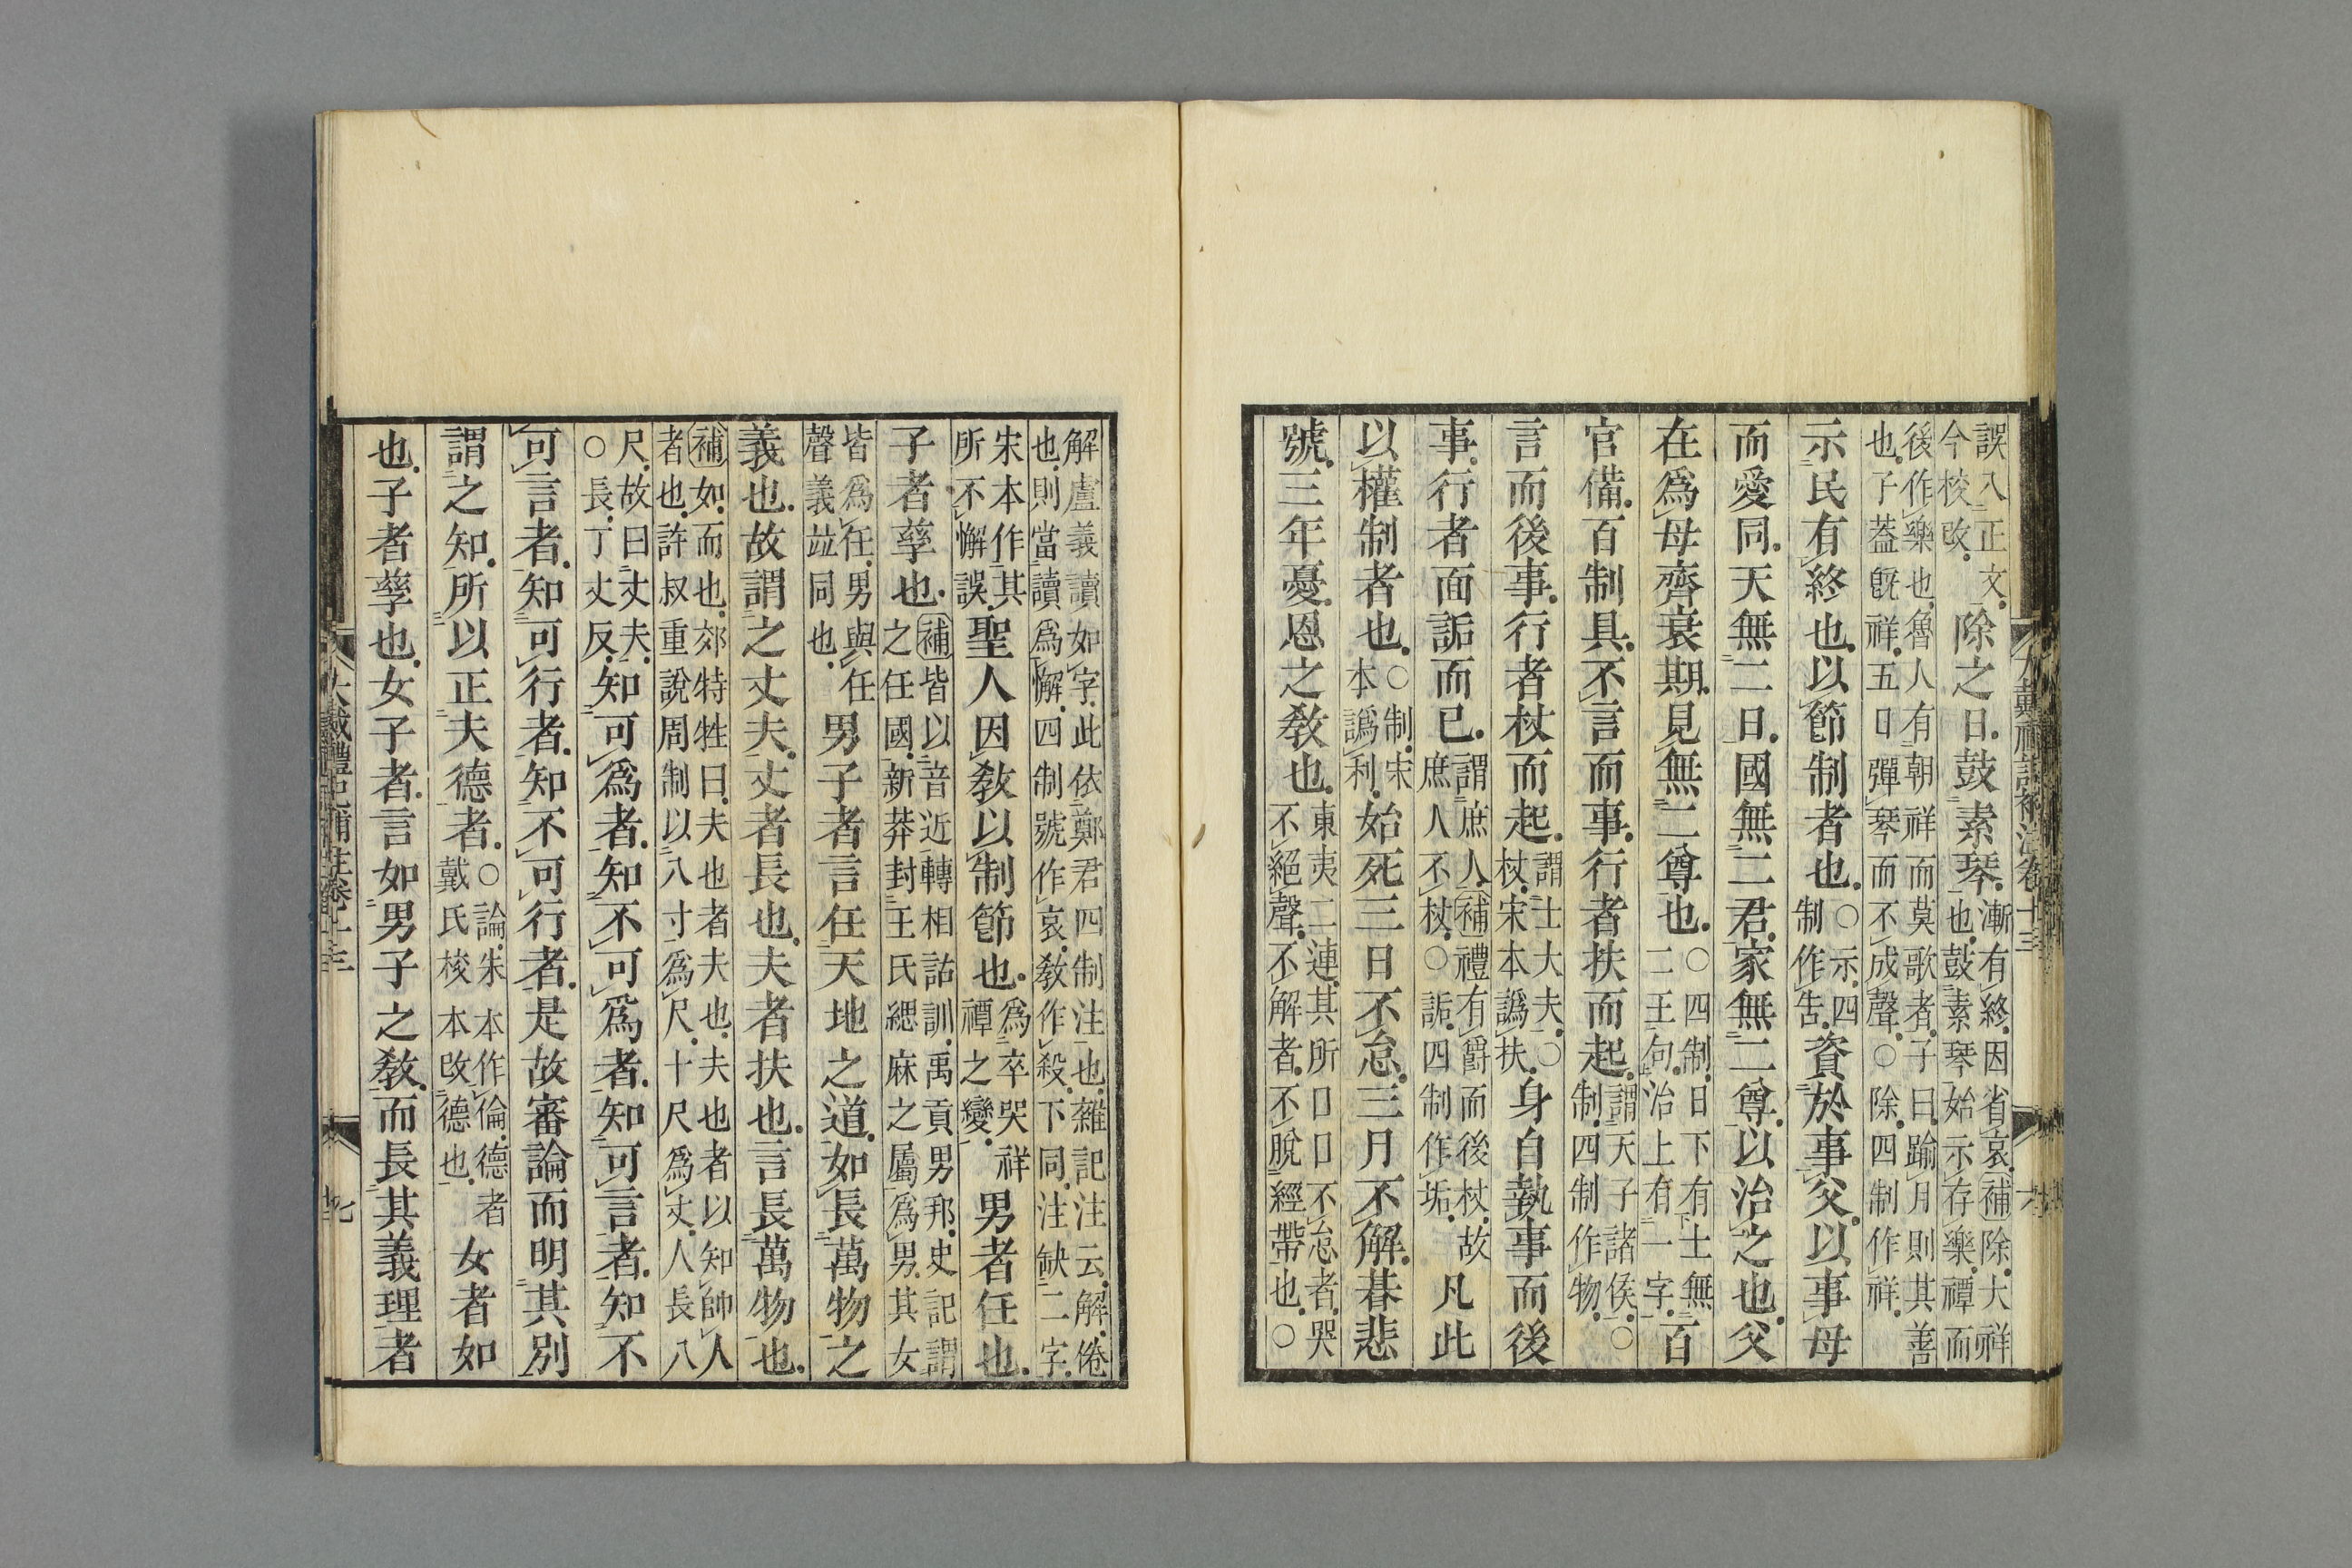 誤入正文今校改除之日鼓素琴漸有終因省哀補除大祥也鼓素琴始示存樂禫而
後作樂也魯人有朝祥而莫歌者子曰踰月則其善也子蓋旣祥五日彈琴而不成聲○除四制作祥
示民有終也以節制者也○示四制作吿資於事父以事母
而愛同天無二日國無二君家無二尊以治之也父
在爲母齊衰期見無二尊也○四制日下有土無二王句治上有一字百
官備百制具不言而事行者扶而起謂天子諸侯○制四制作物
言而後事行者杖而起謂士大夫○杖宋本譌扶身自執事而後
事行者面詬而已謂庶人補禮有爵而後杖故庶人不杖○詬四制作垢凡此
以權制者也○制宋本譌利始死三日不怠三月不解朞悲
號三年憂恩之教也東夷二連其所日日不怠者哭不絕聲不解者不脫經帶也○
解盧義讀如字此依鄭君四制注也雜記注云解倦也則當讀爲懈四制號作哀教作殺下同注缺二字
宋本作其所不懈誤聖人因教以制節也爲卒哭祥禫之變男者任也
子者孳也補皆以音近轉相詁訓禹貢男邦史記謂之任國新莽封王氏緦麻之屬爲男其女
皆爲任男與任聲義竝同也男子者言任天地之道如長萬物之
義也故謂之丈夫丈者長也夫者扶也言長萬物也
補如而也郊特牲曰夫也者夫也夫也者以知帥人者也許叔重說周制以八寸爲尺十尺爲丈人長八
尺故曰丈夫○長丁丈反知可爲者知不可爲者知可言者知不
可言者知可行者知不可行者是故審論而明其別
謂之知所以正夫德者○論朱本作倫德者戴氏校本改德也女者如
也子者孳也女子者言如男子之教而長其義理者
大戴禮記補注卷十三
七